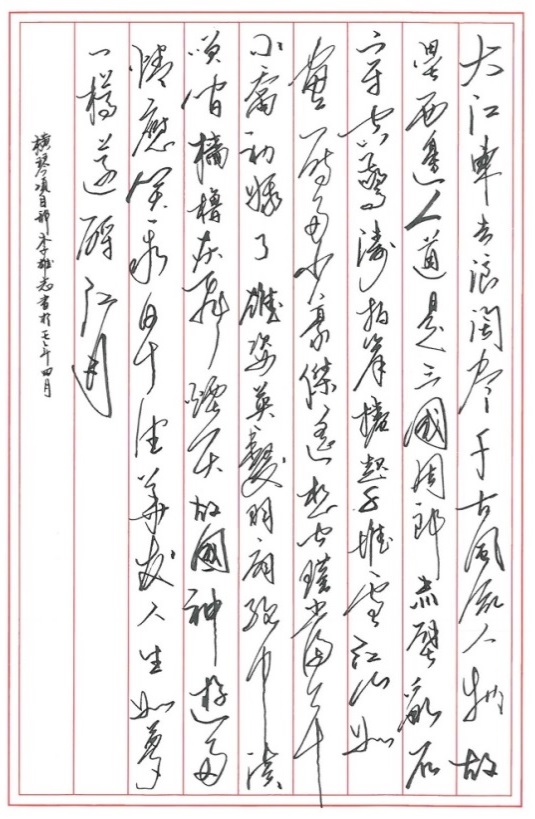 大江東去浪淘盡千古風流人物故
壘西邊人道是三國周郎赤壁亂石
穿空驚濤拍岸捲起千堆雪江山如
畫一時多少豪傑遙想公瑾當年
小喬初嫁了雄姿英發羽扇綸巾談
笑間檣櫓灰飛煙滅故國神遊多
情應笑我早生華髮人生如夢
一樽還酹江月
橫琴項目部李雄志書於年四月